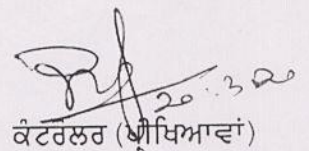 20.3.20
ਕੰਟਰੋਲਰ (ਪ੍ਰੀਖਿਆਵਾਂ)